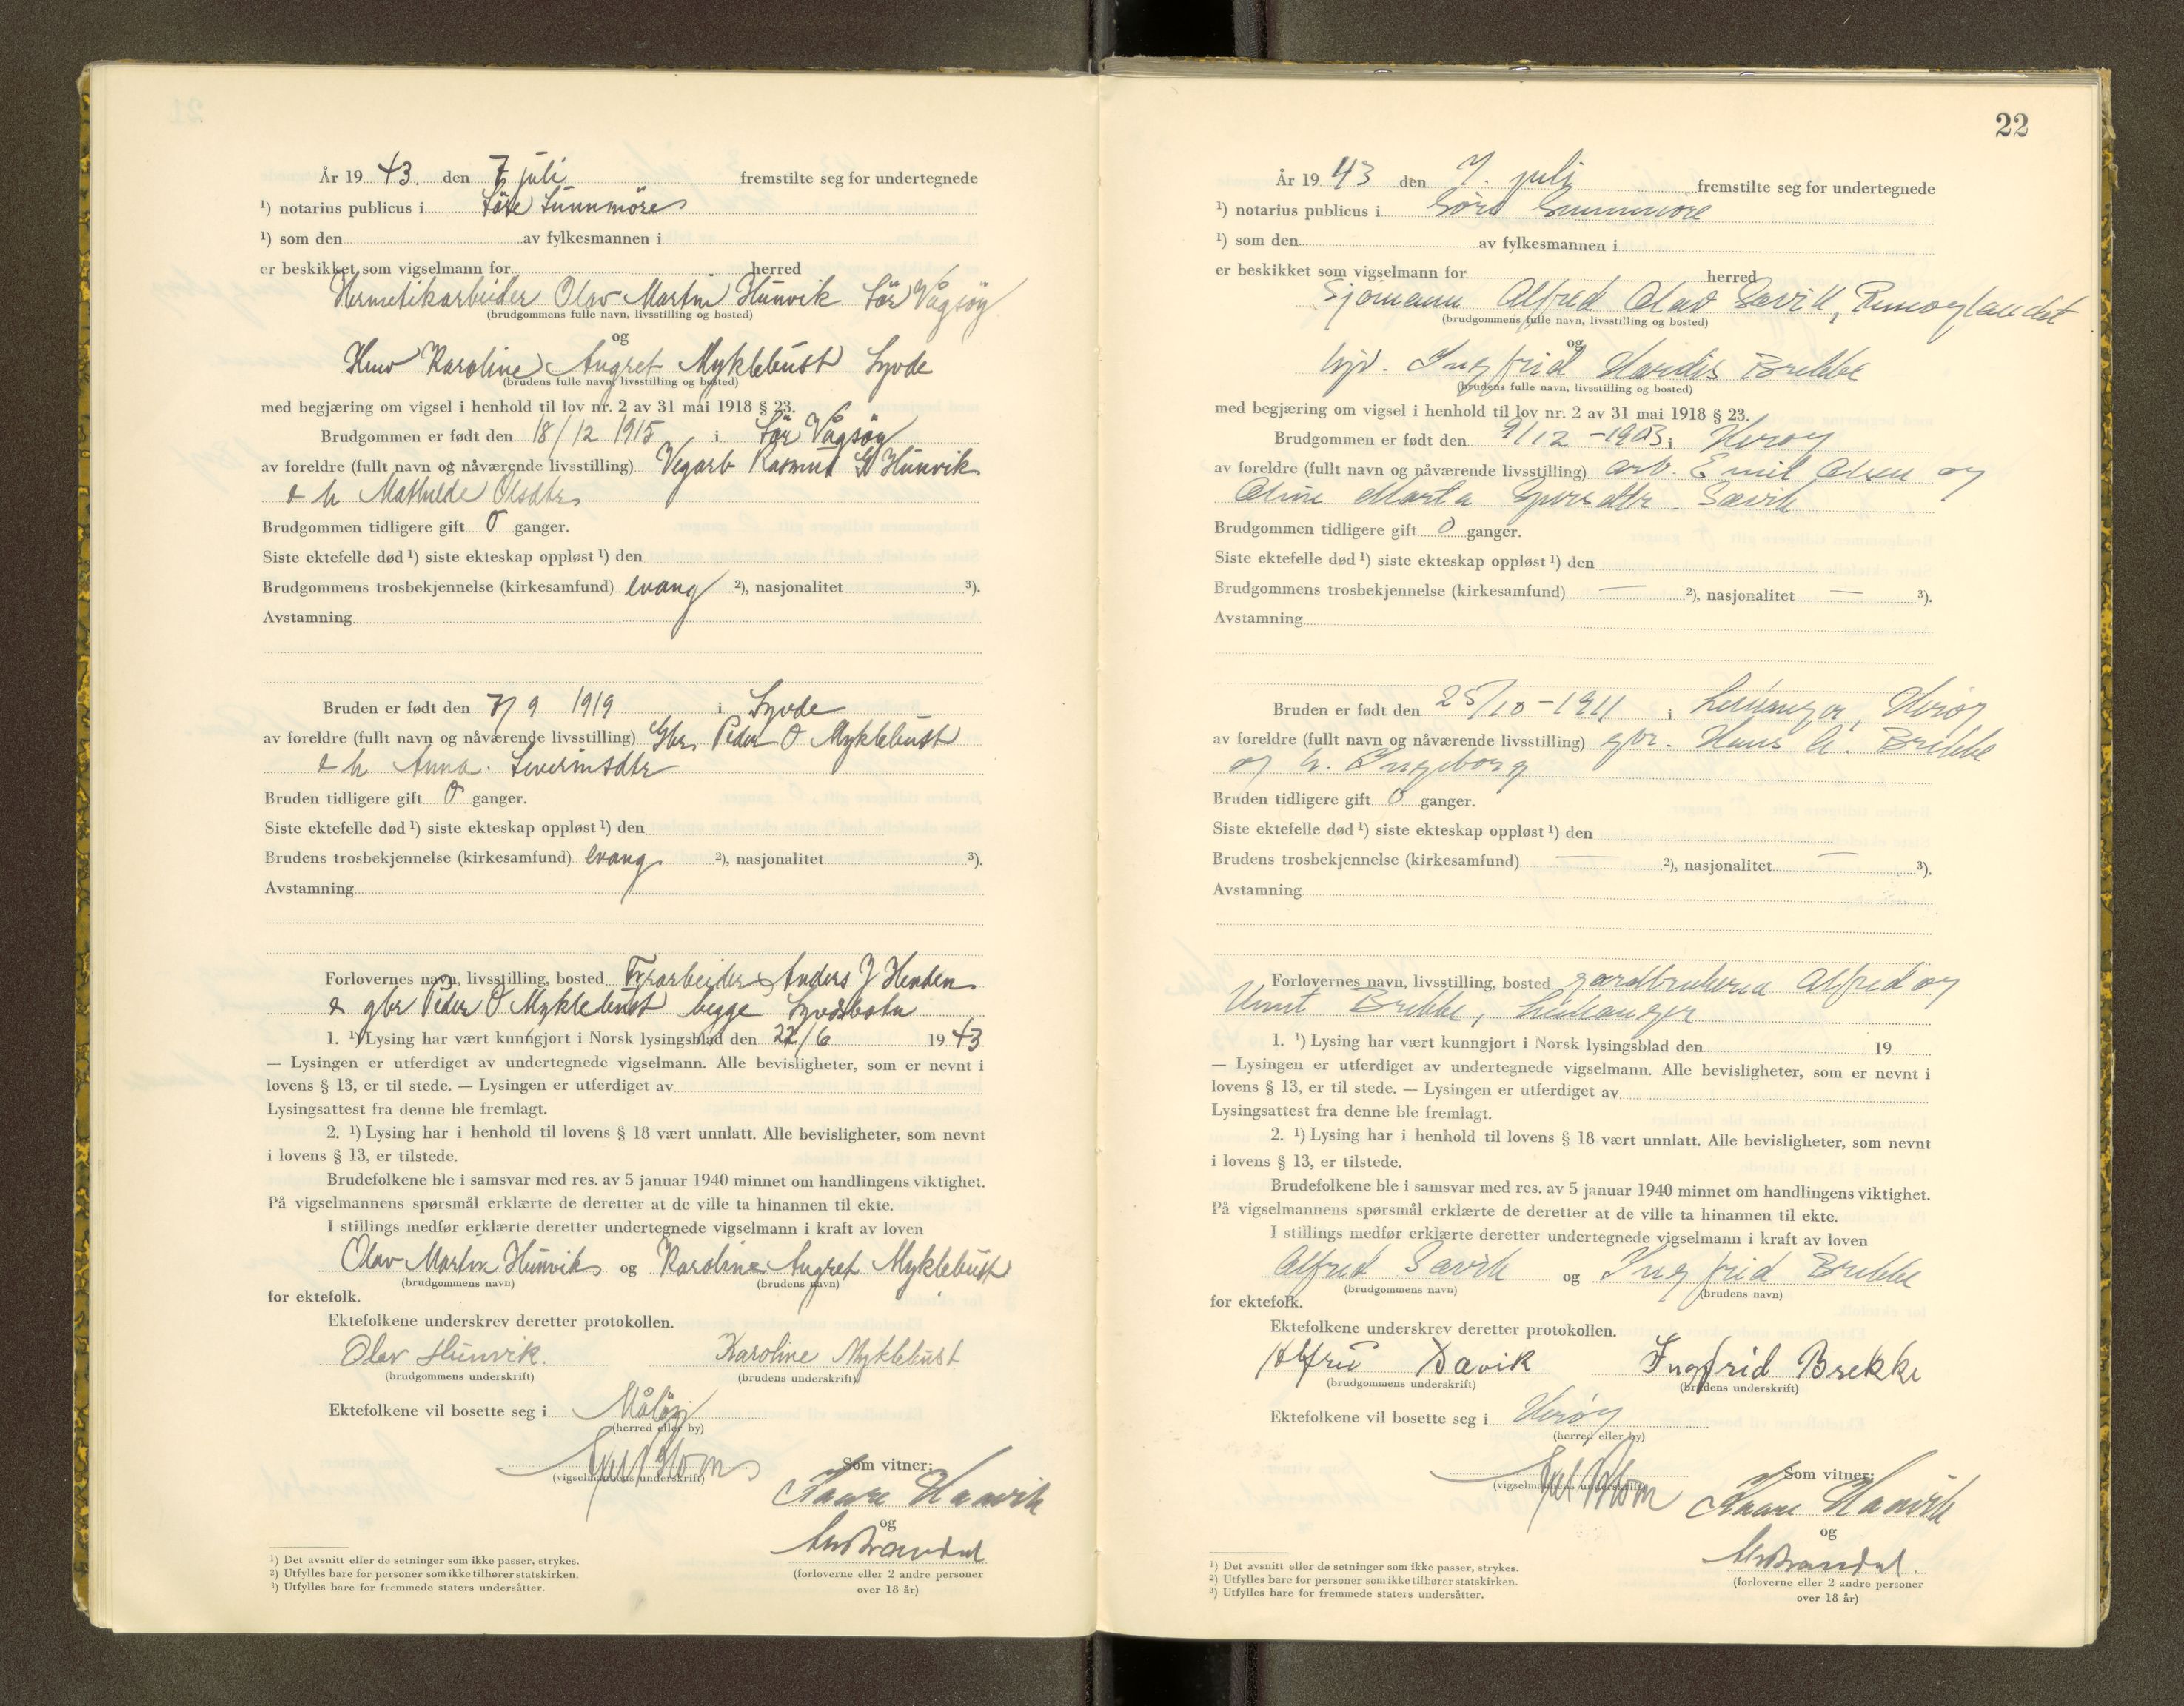 År 19 43. den 7 juli fremstilte seg for undertegnede
¹) notarius publicus i Söre Sunnmöre
¹) som den av fylkesmannen i
er beskikket som vigselmann for herred
Hermetikarbeider Olav Martin Hunvik Sör Vågsöy
(brudgommens fulle navn, livsstilling og bosted)
og
Karoline Augret Myklebust Syvde
(brudens fulle navn, livsstilling og bosted)
med begjæring om vigsel i henhold til lov nr. 2 av 31 mai 1918 § 23.
Brudgommen er født den 18/12 1915 i Sör Vågsöy
av foreldre (fullt navn og nåværende livsstilling) Vegarb Rasmus Hunvik
& h Mathilde Olsdtr
Brudgommen tidligere gift 0 ganger.
Siste ektefelle død ¹) siste ekteskap oppløst ¹) den
Brudgommens trosbekjennelse (kirkesamfund) evang ²), nasjonalitet ³).
Avstamning
Bruden er født den 7/9 1919 i Syvde
av foreldre (fullt navn og nåværende livsstilling) Gbr Peder O Myklebust
& h Anna Severinsdtr
Bruden tidligere gift 0 ganger.
Siste ektefelle død ¹) siste ekteskap oppløst ¹) den
Brudens trosbekjennelse (kirkesamfund) evang ²), nasjonalitet ³).
Avstamning
Forlovernes navn, livsstilling, bosted Anders J Henden
& gbr Peder O Myklebust begge Syvdsbotn
1. ¹) Lysing har vært kunngjort i Norsk lysingsblad den 22/6 19 43
— Lysingen er utferdiget av undertegnede vigselmann. Alle bevisligheter, som er nevnt i
lovens § 13, er til stede. — Lysingen er utferdiget av
Lysingsattest fra denne ble fremlagt.
2. ¹) Lysing har i henhold til lovens § 18 vært unnlatt. Alle bevisligheter, som nevnt
i lovens § 13, er tilstede.
Brudefolkene ble i samsvar med res. av 5 januar 1940 minnet om handlingens viktighet.
På vigselmannens spørsmål erklærte de deretter at de ville ta hinannen til ekte.
I stillings medfør erklærte deretter undertegnede vigselmann i kraft av loven
Olav Martin Hunvik og Karoline Augret Myklebust
(brudgommens navn) (brudens navn)
for ektefolk.
Ektefolkene underskrev deretter protokollen.
Olav Hunvik. Karoline Myklebust
(brudgommens underskrift) (brudens underskrift)
Ektefolkene vil bosette seg i Måløy
(herred eller by)
(vigselmannens underskrift)
Som vitner:
Kaare Haavik
og
(forloverne eller 2 andre personer
over 18 år)
¹) Det avsnitt eller de setninger som ikke passer, strykes.
²) Utfylles bare for personer som ikke tilhører statskirken.
³) Utfylles bare for fremmede staters undersåtter.
22
År 19 43 den 7. juli fremstilte seg for undertegnede
¹) notarius publicus i Søre Sunnmøre
¹) som den av fylkesmannen i
er beskikket som vigselmann for herred
Sjømann Alfred Olav Sævik, Remøylandet
(brudgommens fulle navn, livsstilling og bosted)
og
hjv. Ingfrid Hardis Brekke
(brudens fulle navn, livsstilling og bosted)
med begjæring om vigsel i henhold til lov nr. 2 av 31 mai 1918 § 23.
Brudgommen er født den 9/12 - 1903 i Herøy
av foreldre (fullt navn og nåværende livsstilling) arb. Emil Olsen og
Oline Marta Sjursdtr. Sævik
Brudgommen tidligere gift 0 ganger.
Siste ektefelle død ¹) siste ekteskap oppløst ¹) den
Brudgommens trosbekjennelse (kirkesamfund) — ²), nasjonalitet — ³).
Avstamning
Bruden er født den 25/10 - 1911 i Leikanger, Herøy
av foreldre (fullt navn og nåværende livsstilling) gbr. Hans A. Brekke
og h. Ingeborg
Bruden tidligere gift 0 ganger.
Siste ektefelle død ¹) siste ekteskap oppløst ¹) den
Brudens trosbekjennelse (kirkesamfund) — ²), nasjonalitet — ³).
Avstamning
Forlovernes navn, livsstilling, bosted gardbrukerne Alfred og
Knut Brekke, Leikanger
1. ¹) Lysing har vært kunngjort i Norsk lysingsblad den 19
— Lysingen er utferdiget av undertegnede vigselmann. Alle bevisligheter, som er nevnt i
lovens § 13, er til stede. — Lysingen er utferdiget av
Lysingsattest fra denne ble fremlagt.
2. ¹) Lysing har i henhold til lovens § 18 vært unnlatt. Alle bevisligheter, som nevnt
i lovens § 13, er tilstede.
Brudefolkene ble i samsvar med res. av 5 januar 1940 minnet om handlingens viktighet.
På vigselmannens spørsmål erklærte de deretter at de ville ta hinannen til ekte.
I stillings medfør erklærte deretter undertegnede vigselmann i kraft av loven
Alfred Sævik og Ingfrid Brekke
(brudgommens navn) (brudens navn)
for ektefolk.
Ektefolkene underskrev deretter protokollen.
Alfred Sævik Ingfrid Brekke
(brudgommens underskrift) (brudens underskrift)
Ektefolkene vil bosette seg i Herøy
(herred eller by)
(vigselmannens underskrift)
Som vitner:
Kaare Haavik
og
(forloverne eller 2 andre personer
over 18 år)
¹) Det avsnitt eller de setninger som ikke passer, strykes.
²) Utfylles bare for personer som ikke tilhører statskirken.
³) Utfylles bare for fremmede staters undersåtter.